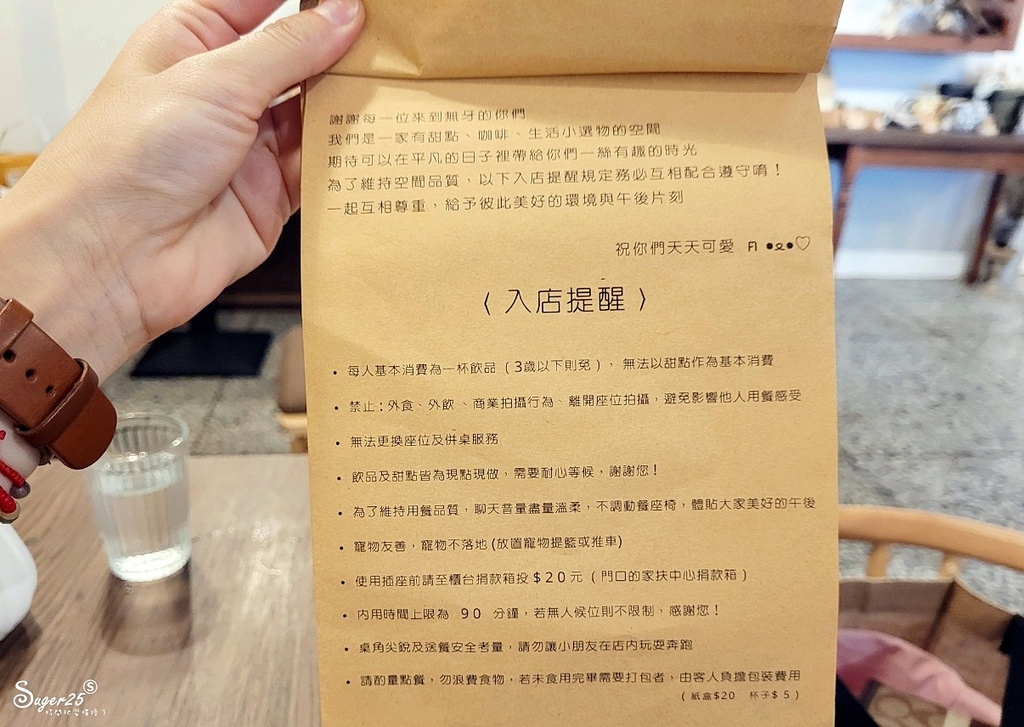 謝謝每一位來到無牙的你們
我們是一家有甜點、咖啡、生活小選物的空間
期待可以在平凡的日子裡帶給你們一絲有趣的時光
為了維持空間品質，以下入店提醒規定務必互相配合遵守唷！
一起互相尊重，給予彼此美好的環境與午後片刻
祝你們天天可愛 ฅ •ܫ•♡
〈 入店提醒 〉
• 每人基本消費為一杯飲品（3歲以下則免），無法以甜點作為基本消費
• 禁止：外食、外飲、商業拍攝行為、離開座位拍攝，避免影響他人用餐感受
• 無法更換座位及併桌服務
• 飲品及甜點皆為現點現做，需要耐心等候，謝謝您！
• 為了維持用餐品質，聊天音量盡量溫柔，不調動餐座椅，體貼大家美好的午後
• 寵物友善，寵物不落地(放置寵物提籃或推車)
• 使用插座前請至櫃台捐款箱投$20元（門口的家扶中心捐款箱）
• 內用時間上限為 90 分鐘，若無人候位則不限制，感謝您！
• 桌角尖銳及送餐安全考量，請勿讓小朋友在店內玩耍奔跑
• 請酌量點餐，勿浪費食物，若未食用完畢需要打包者，由客人負擔包裝費用
（紙盒$20 杯子$5）
Suger25 S